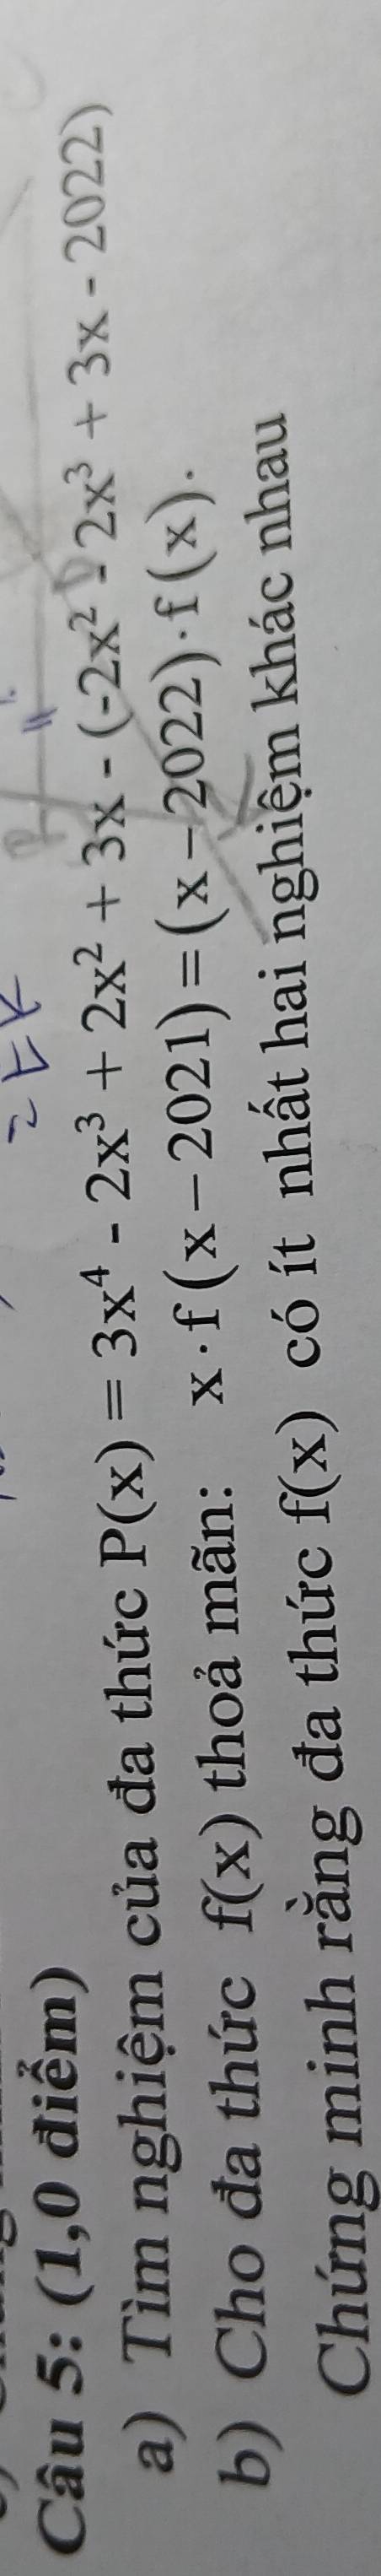 Câu 5: (1,0 điểm)
a) Tìm nghiệm của đa thức P(x) = 3x⁴ - 2x³ + 2x² + 3x - (-2x² - 2x³ + 3x - 2022)
b) Cho đa thức f(x) thoả mãn: x · f(x – 2021) = (x – 2022) · f(x).
Chứng minh rằng đa thức f(x) có ít nhất hai nghiệm khác nhau